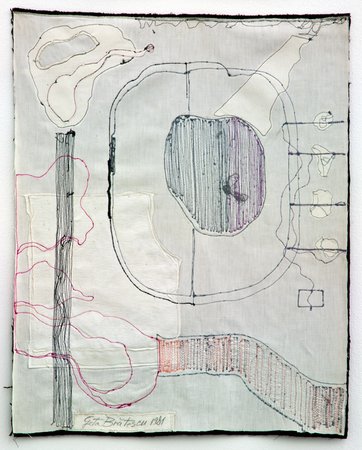 Geta Brătescu 1981